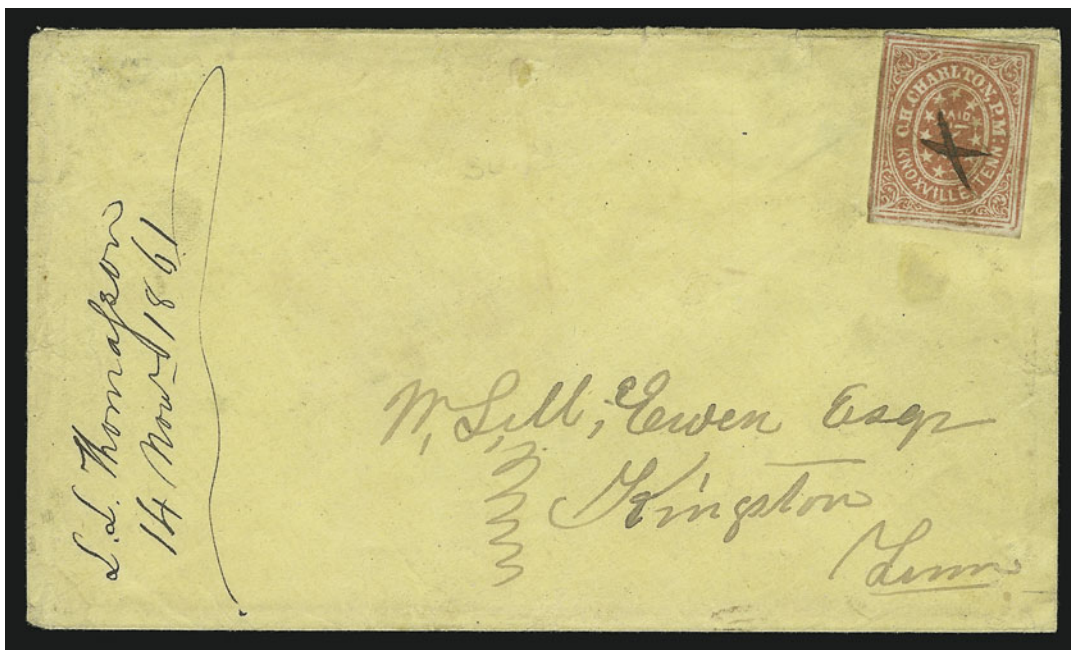 L. L. Thomasson
14 Novr 1861
C. H. CHARLTON, P. M.
PAID
KNOXVILLE TENN:
W. S. McEwen Esqr
Kingston
Tenn